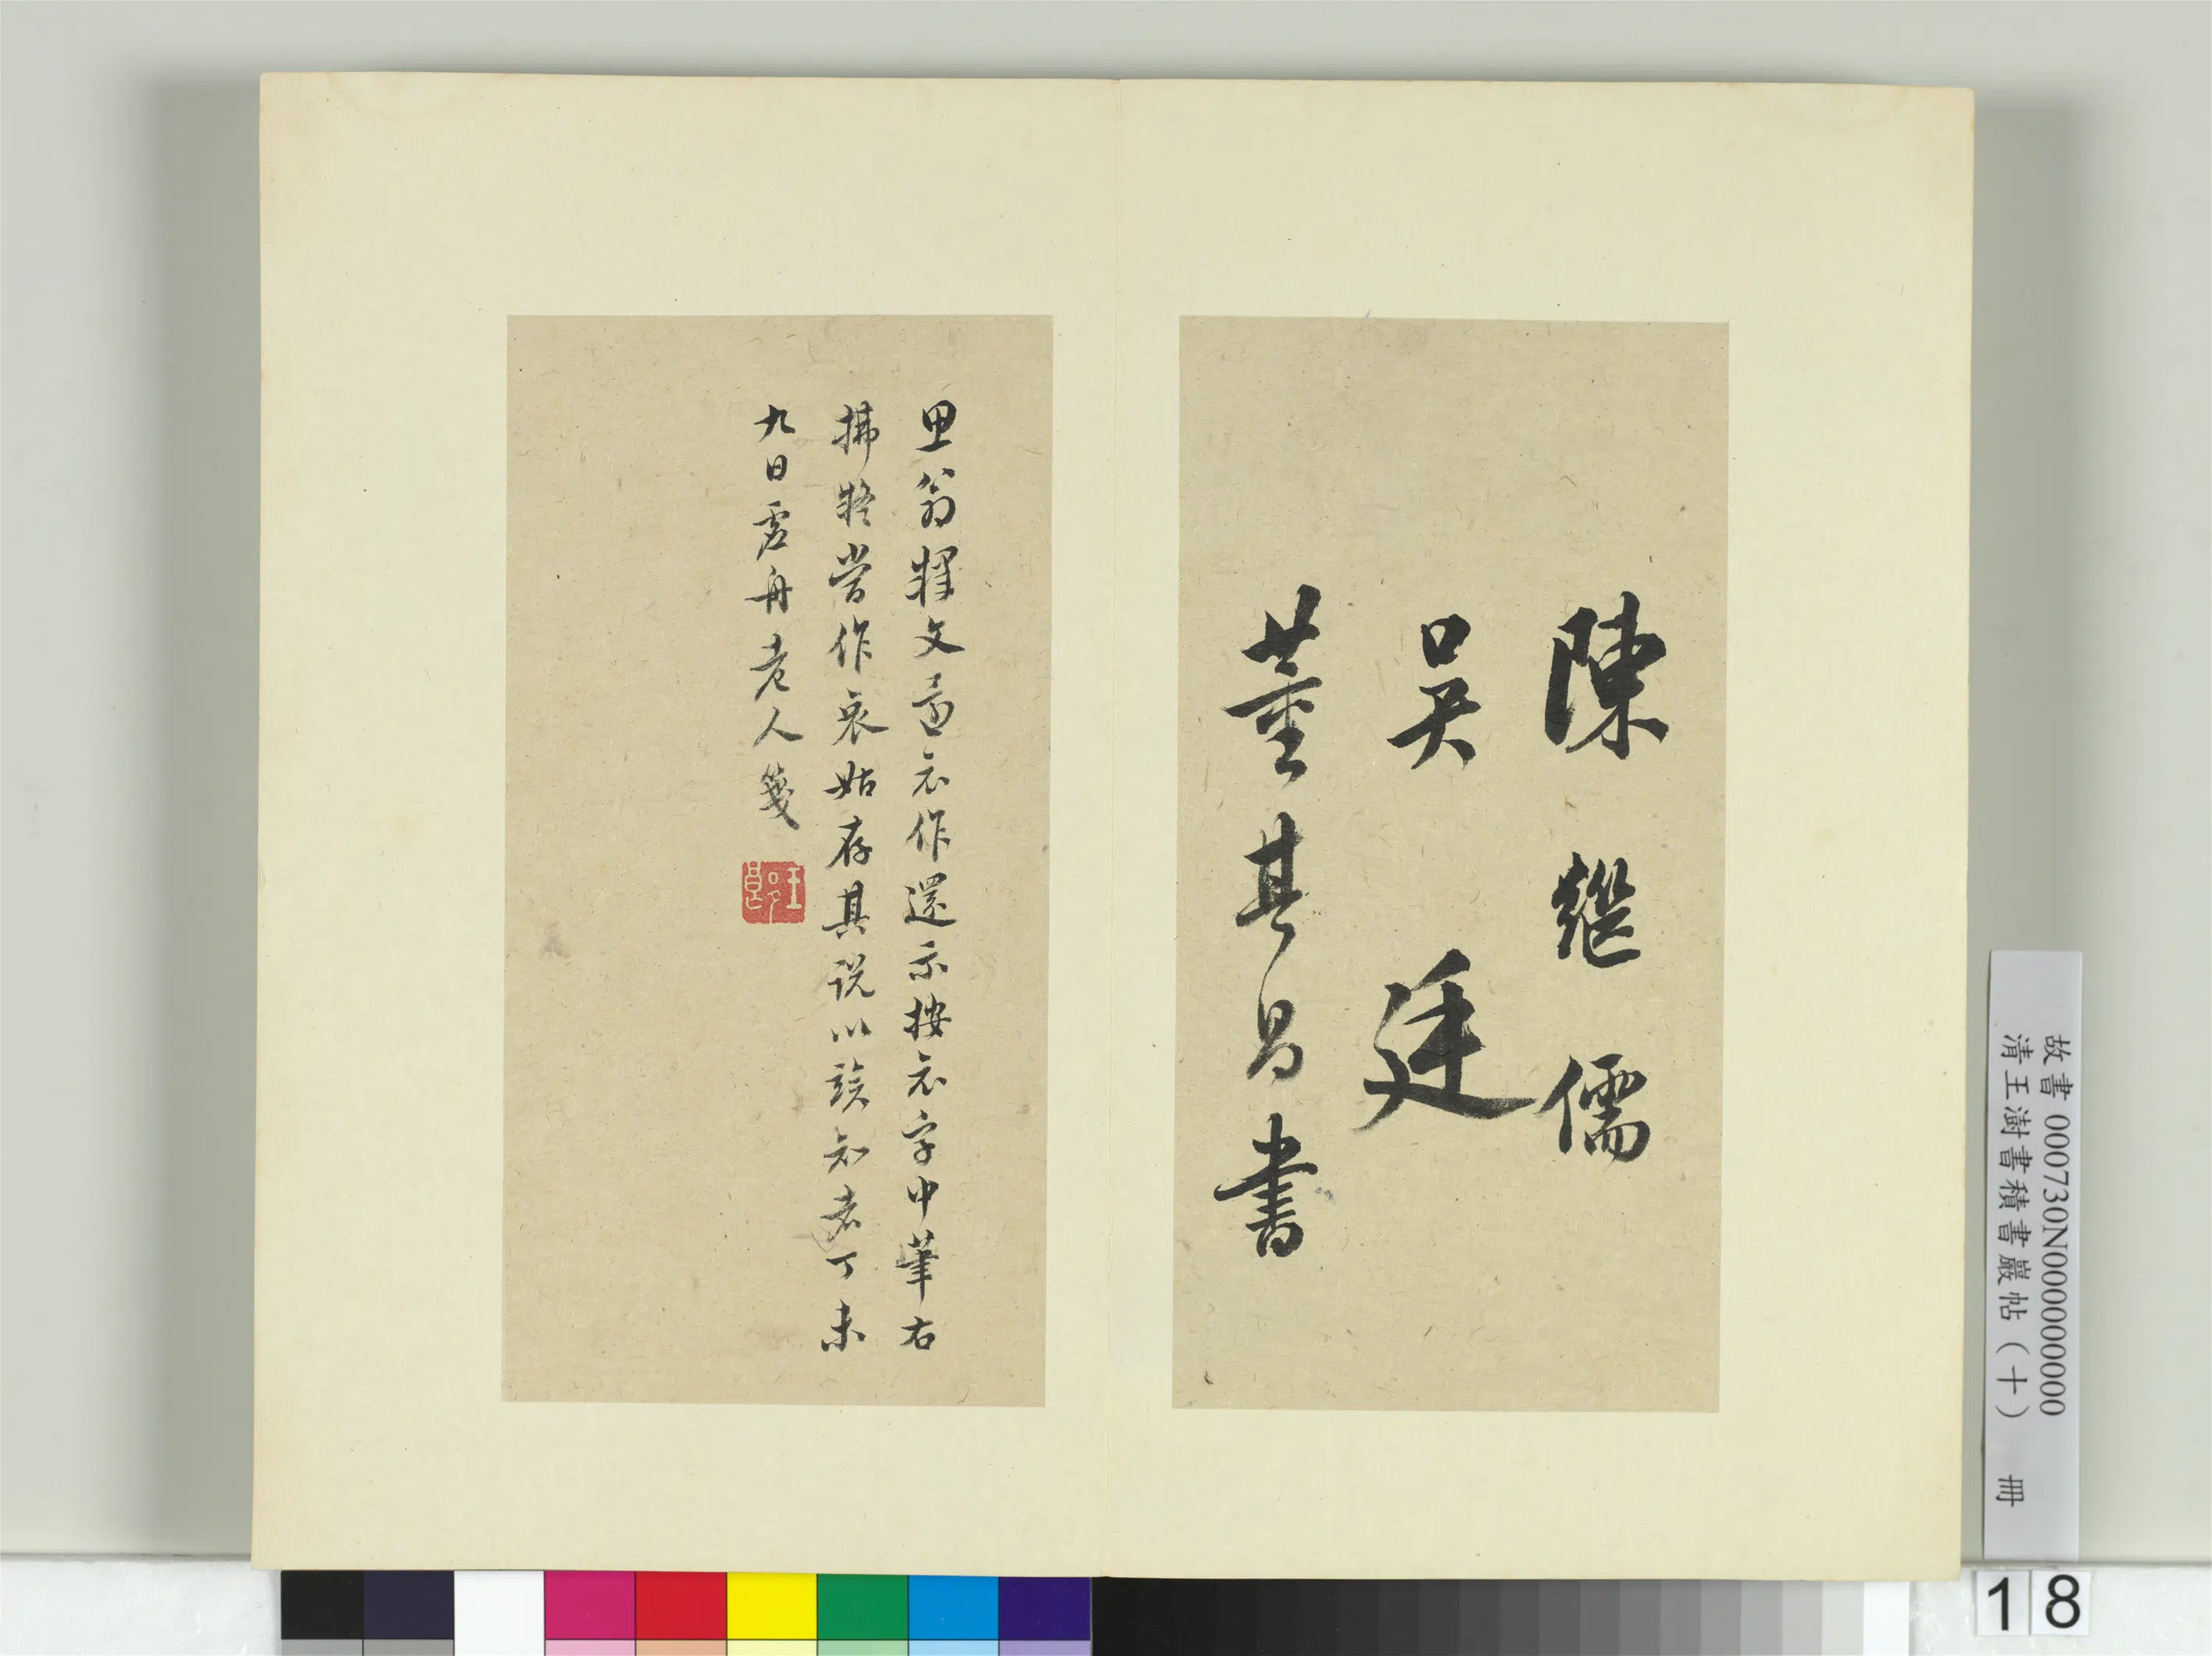 陳繼儒
吳廷
董其昌書
思翁釋文還衣作還示按衣字中筆右
拂特嘗作哀姑存其說以詒知者丁未
九日虛舟老人箋
故書 000730N000000000
清王澍書積書巖帖（十） 冊
18